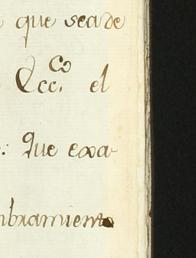 que sea de
&cc.ᶜᵒ el
: Que exa-
mbramiento